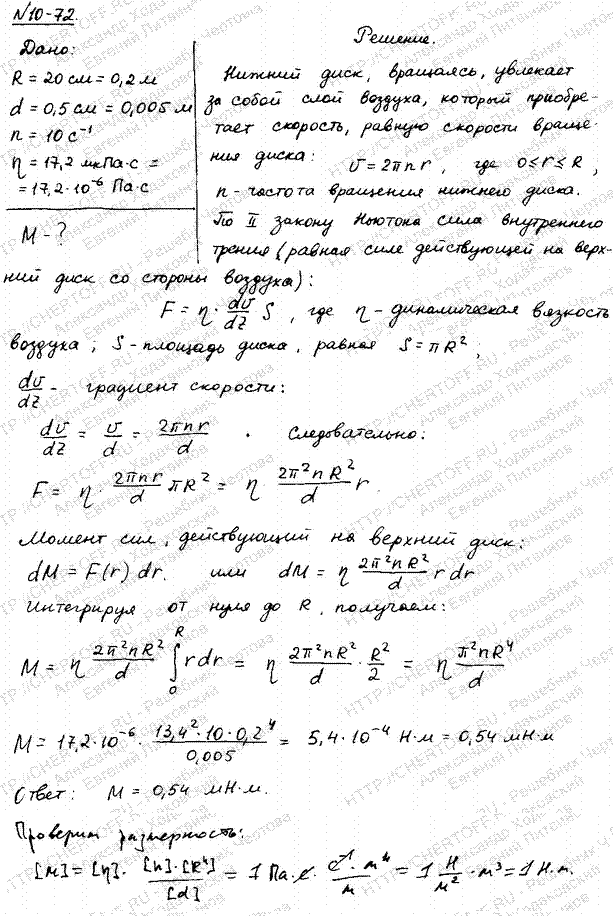 №10-72.
Дано:
R = 20 см = 0,2 м
d = 0,5 см = 0,005 м
n = 10 с⁻¹
η = 17,2 мкПа·с =
= 17,2·10⁻⁶ Па·с
M - ?
Решение.
Нижний диск, вращаясь, увлекает
за собой слой воздуха, который приобре-
тает скорость, равную скорости враще-
ния диска: υ = 2πnr, где 0≤r≤R,
n - частота вращения нижнего диска.
По II закону Ньютона сила внутреннего
трения (равная силе действующей на верх-
ний диск со стороны воздуха):
F = η · dυ/dz S, где η - динамическая вязкость
воздуха; S - площадь диска, равная S = πR²;
dυ/dz - градиент скорости:
dυ/dz = υ/d = 2πnr/d . Следовательно:
F = η · 2πnr/d πR² = η 2π²nR²/d r.
Момент сил, действующий на верхний диск:
dM = F(r) dr. или dM = η 2π²nR²/d r dr
Интегрируя от нуля до R, получаем:
M = η 2π²nR²/d ∫₀ᴿ r dr = η 2π²nR²/d · R²/2 = η π²nR⁴/d
M = 17,2·10⁻⁶ · 13,4²·10·0,2⁴/0,005 = 5,4·10⁻⁴ Н·м = 0,54 мН·м
Ответ: M = 0,54 мН·м.
Проверим размерность:
[м] = [η] · [n]·[R⁴]/[d] = 1 Па·с · с⁻¹·м⁴/м = 1 Н/м² · м³ = 1 Н·м.
HTTP://CHERTOFF.RU - Решебник Чертова
Александр Ходаковский
Евгений Питвинов